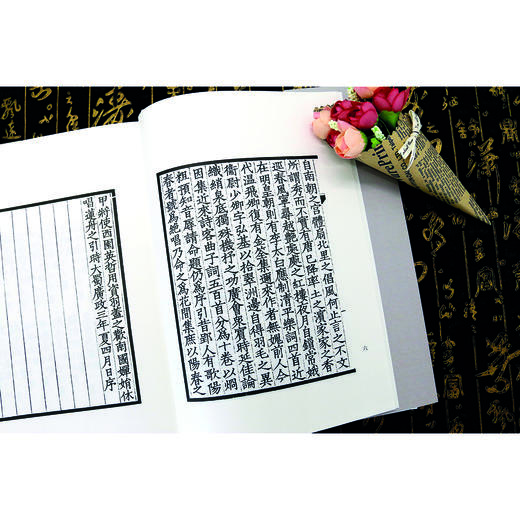 自南朝之宮體扇北里之倡風何止言之不文
所謂秀而不實有唐已降率土之濱家家之香
逕春風寧尋越豔處處之紅樓夜月自鎖常娥
在明皇朝則有李太白應制清平樂詞四首近
代溫飛卿復有金筌集邇來作者無媿前人今
衛尉少卿字弘基以拾翠洲邊自得羽毛之異
織綃泉底獨殊機杼之功廣會衆賓時延佳論
因集近來詩客曲子詞五百首分爲十卷以炯
粗預知音辱請命題仍爲序引昔郢人有歌陽
春者號爲絕唱乃命之爲花間集庶以陽春之
六
甲將使西園英哲用資羽蓋之歡南國嬋娟休
唱蓮舟之引時大蜀廣政三年夏四月日序